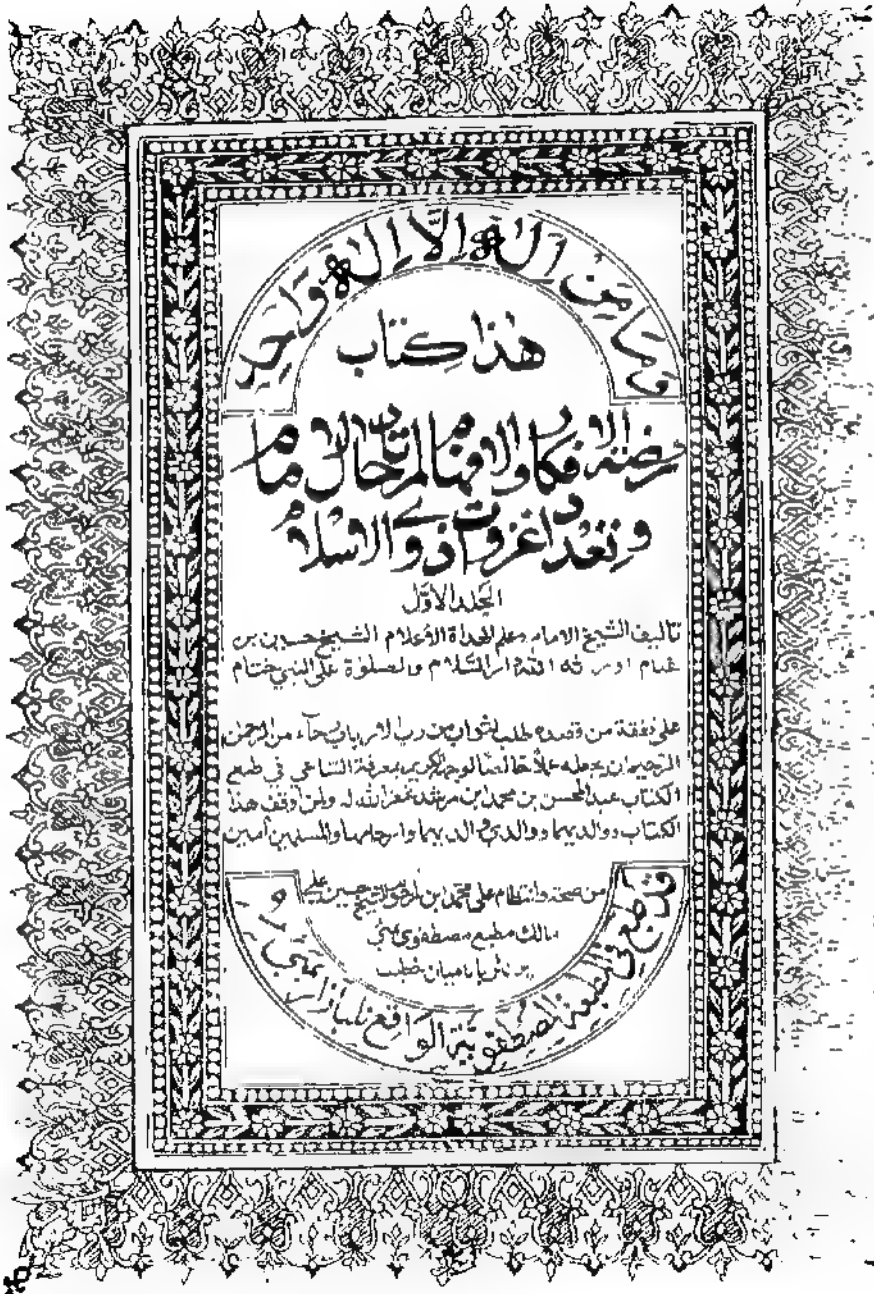 وَمَا مِنْ إِلٰهٍ إِلَّا إِلٰهٌ وَاحِدٌ
هٰذا كِتاب
روضة الافكار والافهام لمرتاد حال الامام
وتعداد غزوات ذوي الاسلام
الجلد الاوّل
تأليف الشيخ الامام وعلم الهداة الأعلام الشيخ حسين بن
غنام اورثه الله دار السّلام والصلوٰة على النبي ختام
على نفقة من قصده طلب الثواب من رب الارباب رجآء من الرحمن
الرحيم ان يجعله عملاً خالصًا لوجهه الكريم بمعرفة الساعي في طبع
الكتاب عبد المحسن بن محمد ابن مرشد غفر الله له ولمن أوقف هذا
الكتاب ووالديهما ووالدي والديهما وارحامهما والمسلمين آمين
من صحة وانتظام على محمد ابن الشيخ حسين على
مالك مطبع مصطفوى بمبئي
باباميان خطيب
قد طبع في المطبعة المصطفوية الواقع نلبازار بمبئي